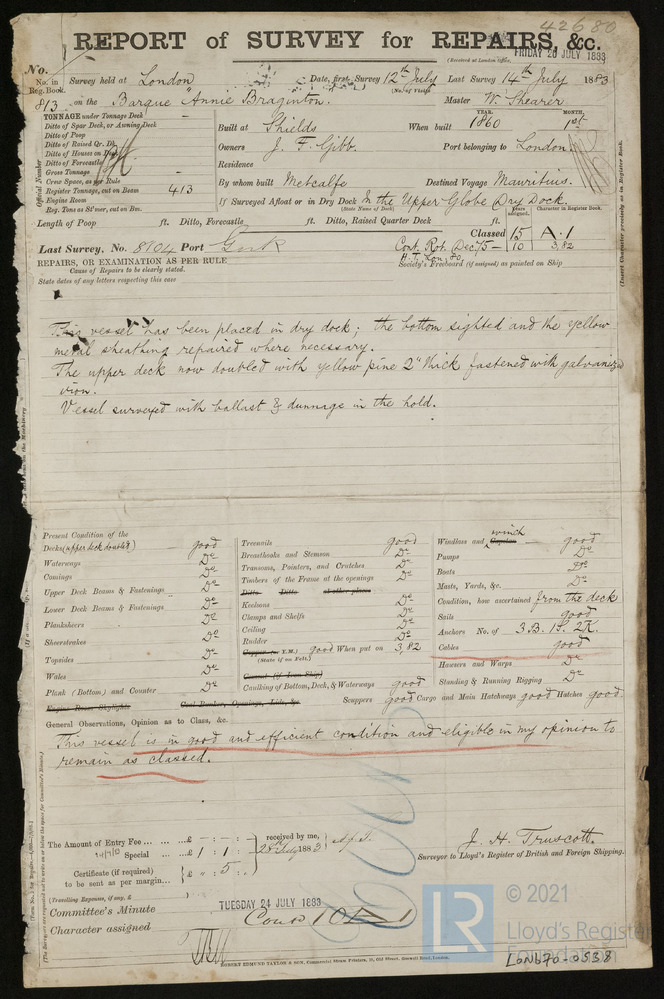 42680
REPORT of SURVEY for REPAIRS, &c.
(Received at London Office, FRIDAY 20 JULY 1883
No.
No. in Reg. Book. Survey held at London Date, first Survey 12th July Last Survey 14th July 1883
(No. of Visits)
813 on the Barque "Annie Braginton. Master W. Shearer
TONNAGE under Tonnage Deck
Ditto of Spar Deck, or Awning Deck
Ditto of Poop
Ditto of Raised Qr. Dk.
Ditto of Houses on Deck
Ditto of Forecastle
Gross Tonnage
Crew Space, as per Rule
Register Tonnage, cut on Beam 413
Engine Room
Reg. Tons as St'mer, cut on Bm.
Official Number
YEAR. MONTH.
Built at Shields When built 1860 1st
Owners J. F. Gibb. Port belonging to London
Residence
By whom built Metcalfe Destined Voyage Mauritius.
If Surveyed Afloat or in Dry Dock In the Upper Globe Dry Dock.
(State Name of Dock)
Years assigned. Character in Register Book.
Length of Poop ft. Ditto, Forecastle ft. Ditto, Raised Quarter Deck ft.
Classed 15 A.1
Last Survey. No. 8104 Port Cork Cont. Rot. Dec 75 – 10 3,82
H.T. Lon. 80
REPAIRS, OR EXAMINATION AS PER RULE
Society's Freeboard (if assigned) as painted on Ship
Cause of Repairs to be clearly stated.
State dates of any letters respecting this case
(Insert Character precisely as in Register Book.
This vessel has been placed in dry dock; the bottom sighted and the yellow
metal sheathing repaired where necessary.
The upper deck now doubled with yellow pine 2" thick fastened with galvanized
iron.
Vessel surveyed with ballast & dunnage in the hold.
Present Condition of the
Decks (upper deck doubled) good
Waterways Do
Comings Do
Upper Deck Beams & Fastenings Do
Lower Deck Beams & Fastenings Do
Planksheers Do
Sheerstrakes Do
Topsides Do
Wales Do
Plank (Bottom) and Counter Do
Engine Room Skylights Coal Bunker Openings, Lids, &c.
Treenails good
Breasthooks and Stemson Do
Transoms, Pointers, and Crutches Do
Timbers of the Frame at the openings Do
Ditto Ditto at other places
Keelsons Do
Clamps and Shelfs Do
Ceiling Do
Rudder Do
Copper (or Y.M.) good When put on 3,82
(State if on Felt.)
Cement (if Iron Ship)
Caulking of Bottom, Deck, & Waterways good
Scuppers good
Windlass and Capstan winch good
Pumps Do
Boats Do
Masts, Yards, &c. Do
Condition, how ascertained from the deck
Sails good
Anchors No. of 3 B. 1 S. 2 K.
Cables good
Hawsers and Warps Do
Standing & Running Rigging Do
Cargo and Main Hatchways good Hatches good
General Observations, Opinion as to Class, &c.
This vessel is in good and efficient condition and eligible in my opinion to
remain as classed.
The Amount of Entry Fee ... £ - : - :
Special ... £ 1 : 1 :
Certificate (if required) £ " : 5 :
to be sent as per margin...
received by me,
25th July 1883
(Travelling Expenses, if any, £ )
J. H. Truscott.
Surveyor to Lloyd's Register of British and Foreign Shipping.
Committee's Minute TUESDAY 24 JULY 1883
Character assigned Cont 10 A 1
ROBERT EDMUND TAYLOR & SON, Commercial Steam Printers, 19, Old Street, Goswell Road, London.
LR
© 2021
Lloyd's Register
Foundation
LON670-0538